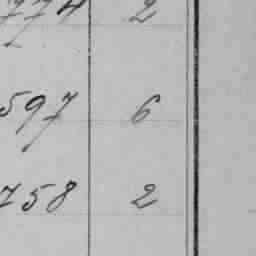 774 2
597 6
758 2